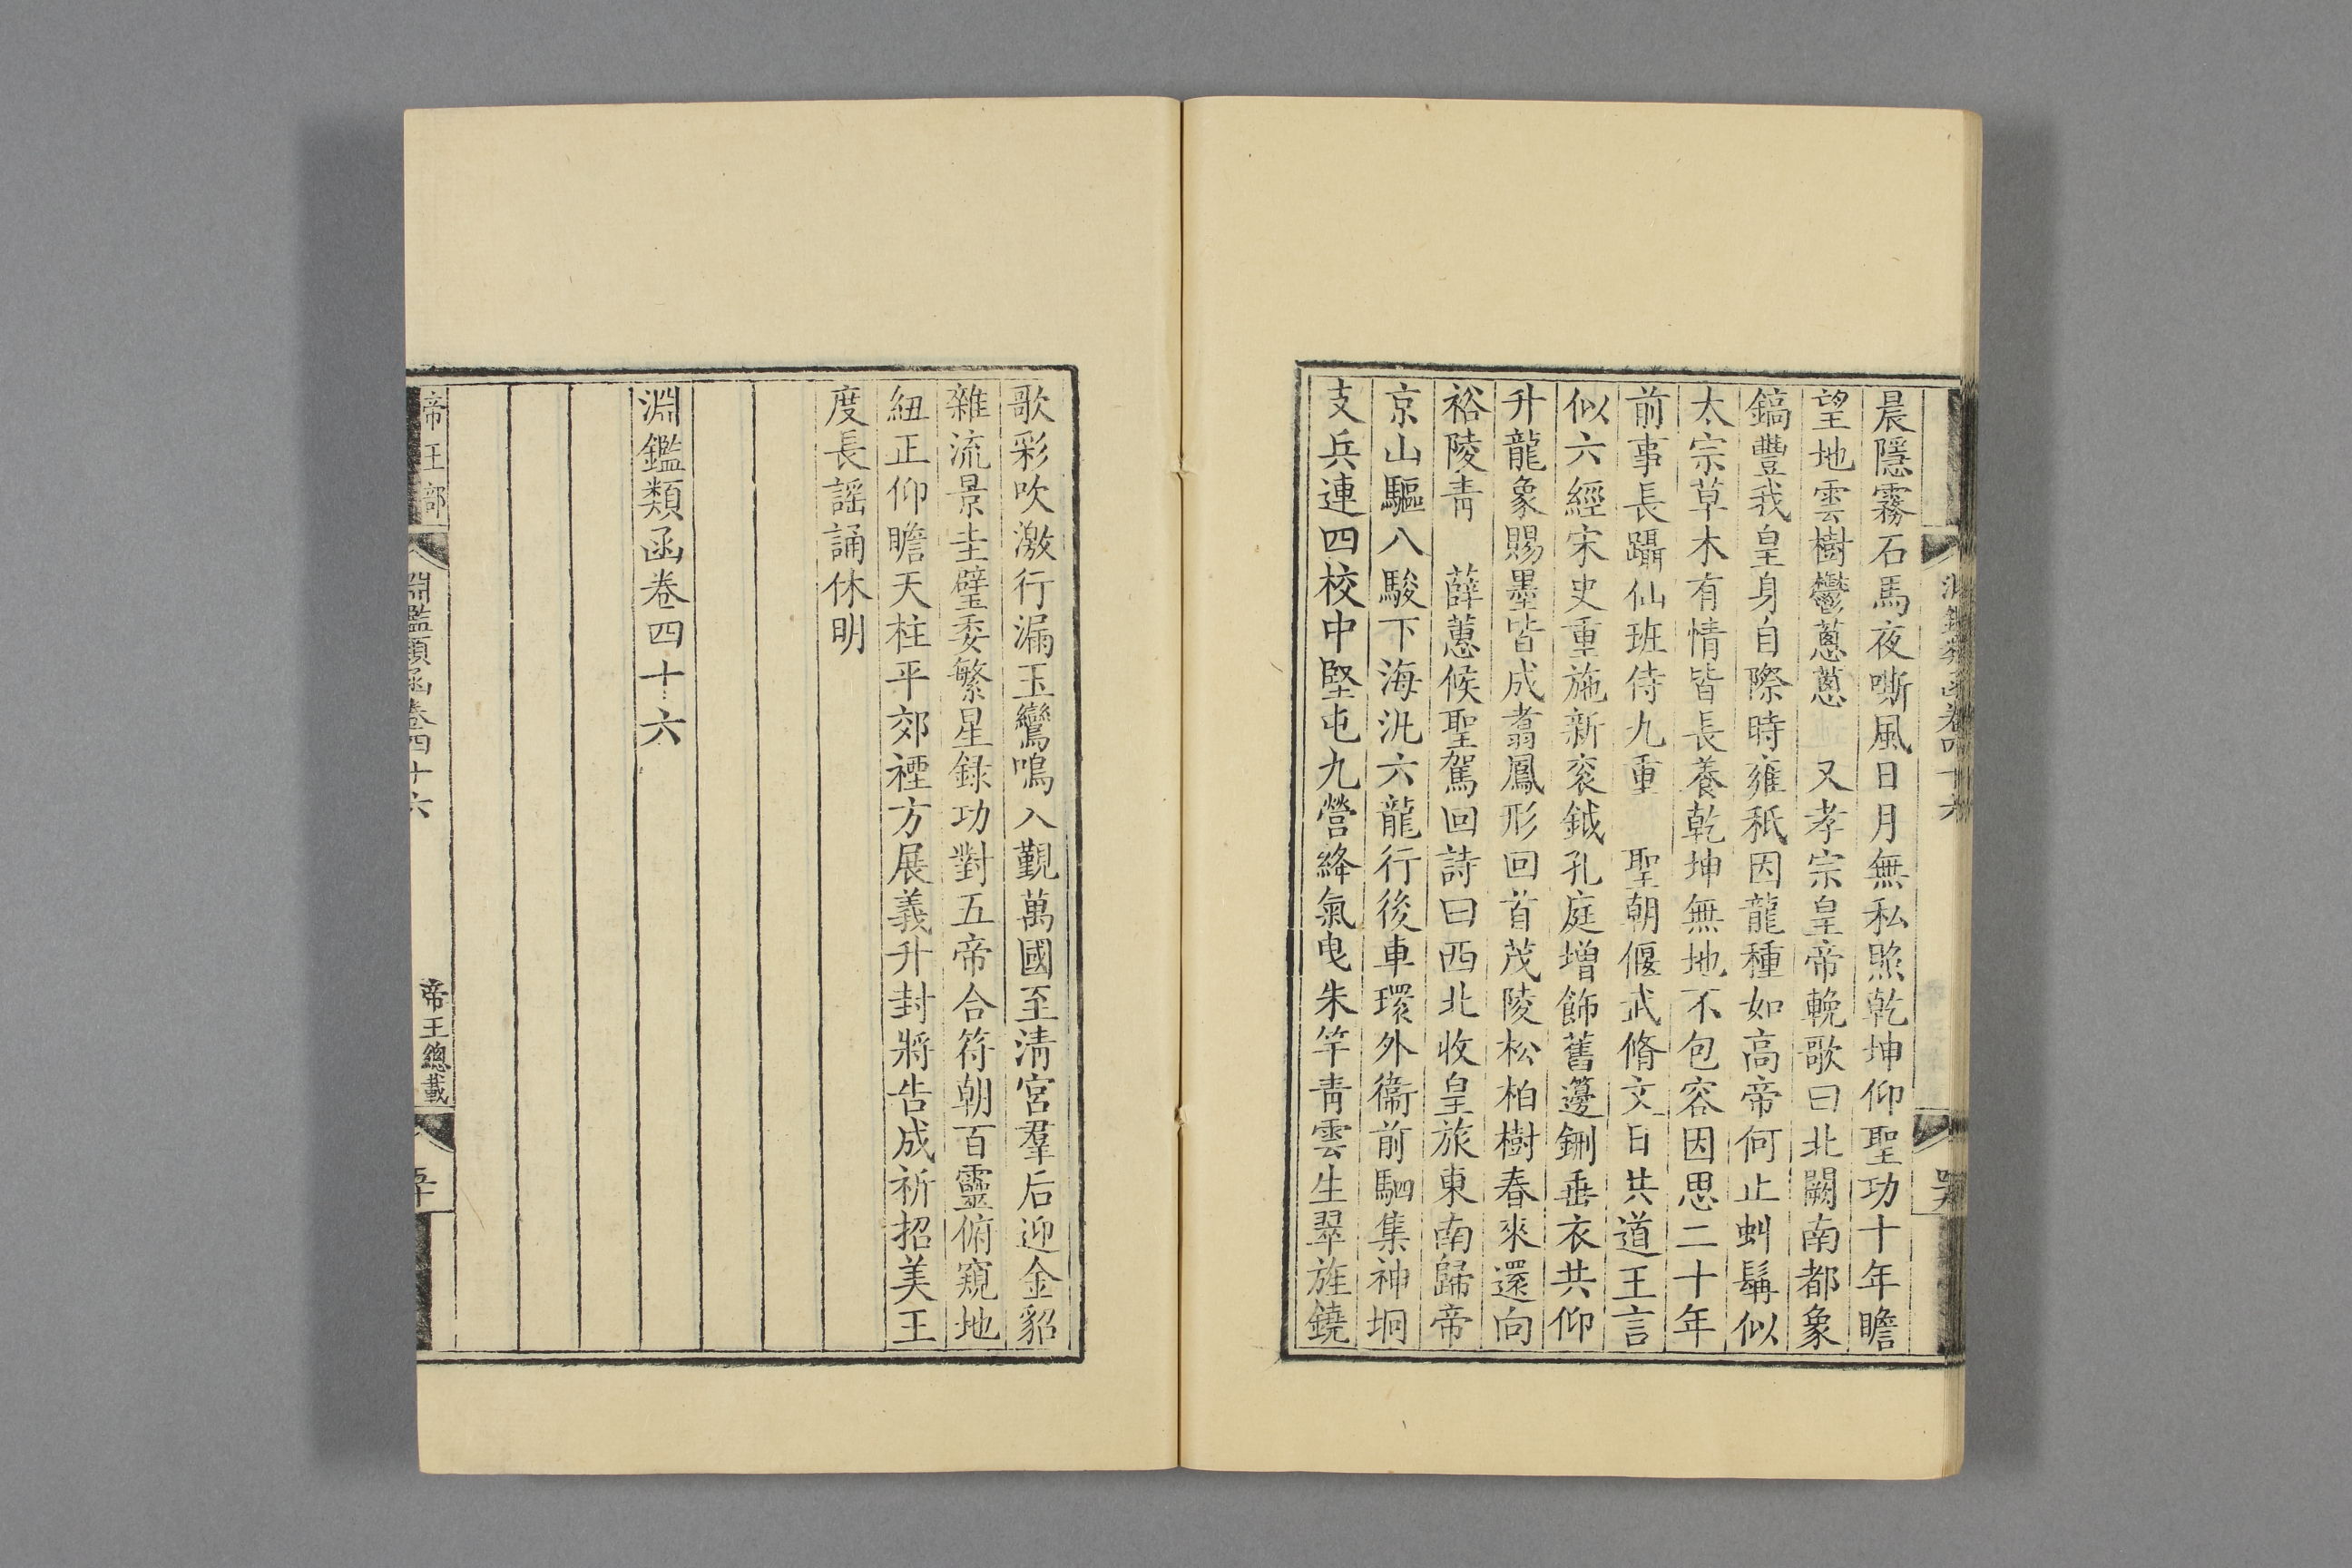 晨隱霧石馬夜嘶風日月無私照乾坤仰聖功十年瞻
望地雲樹鬱蔥蔥　又孝宗皇帝輓歌曰北闕南都象
鎬豐我皇身自際時雍秖因龍種如高帝何止虯髯似
太宗草木有情皆長養乾坤無地不包容因思二十年
前事長躡仙班侍九重　聖朝偃武脩文日共道王言
似六經宋史重施新袞鉞孔庭增飾舊籩鉶垂衣共仰
升龍象賜墨皆成翥鳳形回首茂陵松柏樹春來還向
裕陵青　薛蕙候聖駕回詩曰西北收皇旅東南歸帝
京山驅八駿下海汎六龍行後車環外衞前駟集神坰
支兵連四校中堅屯九營絳氣曳朱竿青雲生翠旌鐃
歌彩吹激行漏玉鸞鳴入覲萬國至清宮羣后迎金貂
雜流景圭璧委繁星録功對五帝合符朝百靈俯窺地
紐正仰瞻天柱平郊禋方展義升封將告成祈招美王
度長謡誦休明
淵鑑類函卷四十六
帝王部
淵鑑類函卷四十六
帝王總載